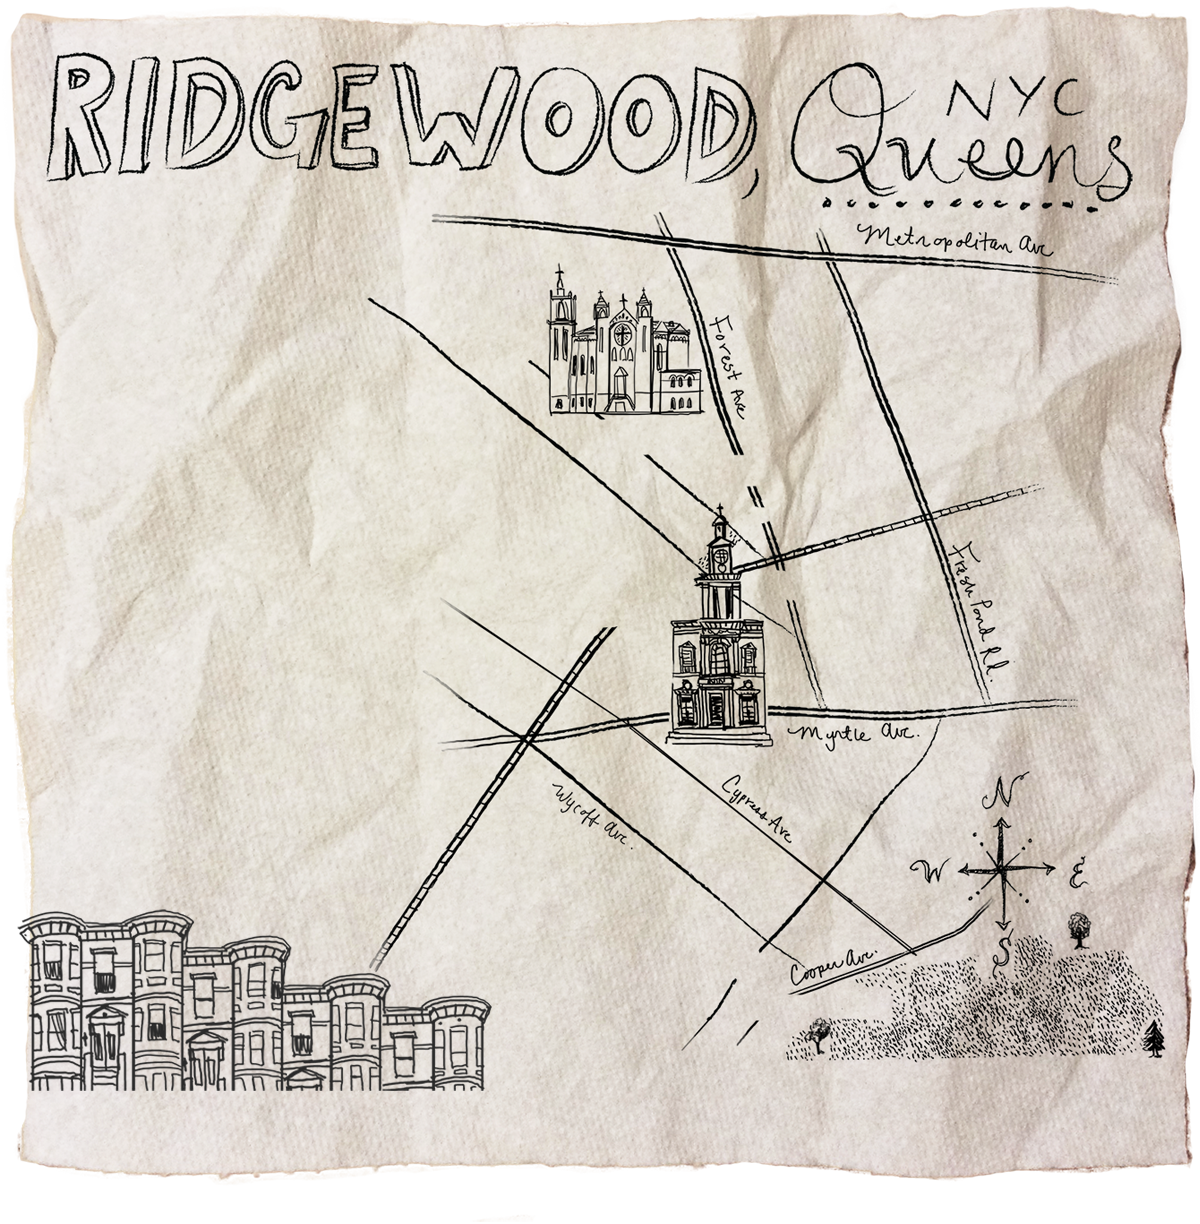 RIDGEWOOD, Queens
NYC
Metropolitan Ave
Forest Ave
Fresh Pond Rd.
Myrtle Ave.
Cypress Ave
Wycoff Ave.
N
W E
S
Cooper Ave.